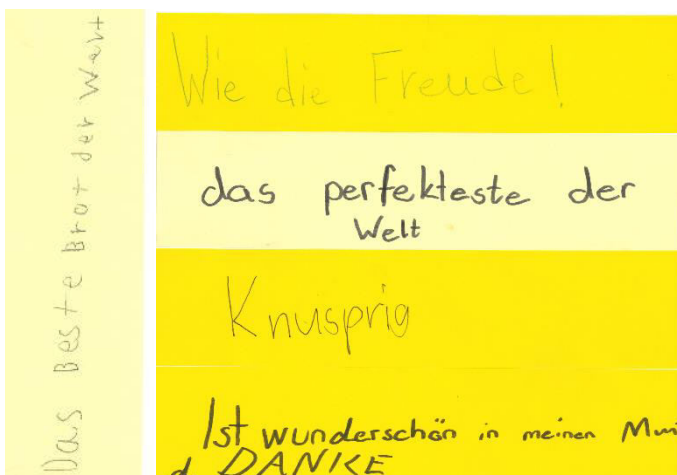 Das Beste Brot der Welt
Wie die Freude!
das perfekteste der
Welt
Knusprig
Ist wunderschön in meinen Mun
d DANKE